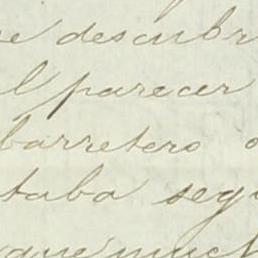 e descubr
l parecer
barretero
taba segu
que much